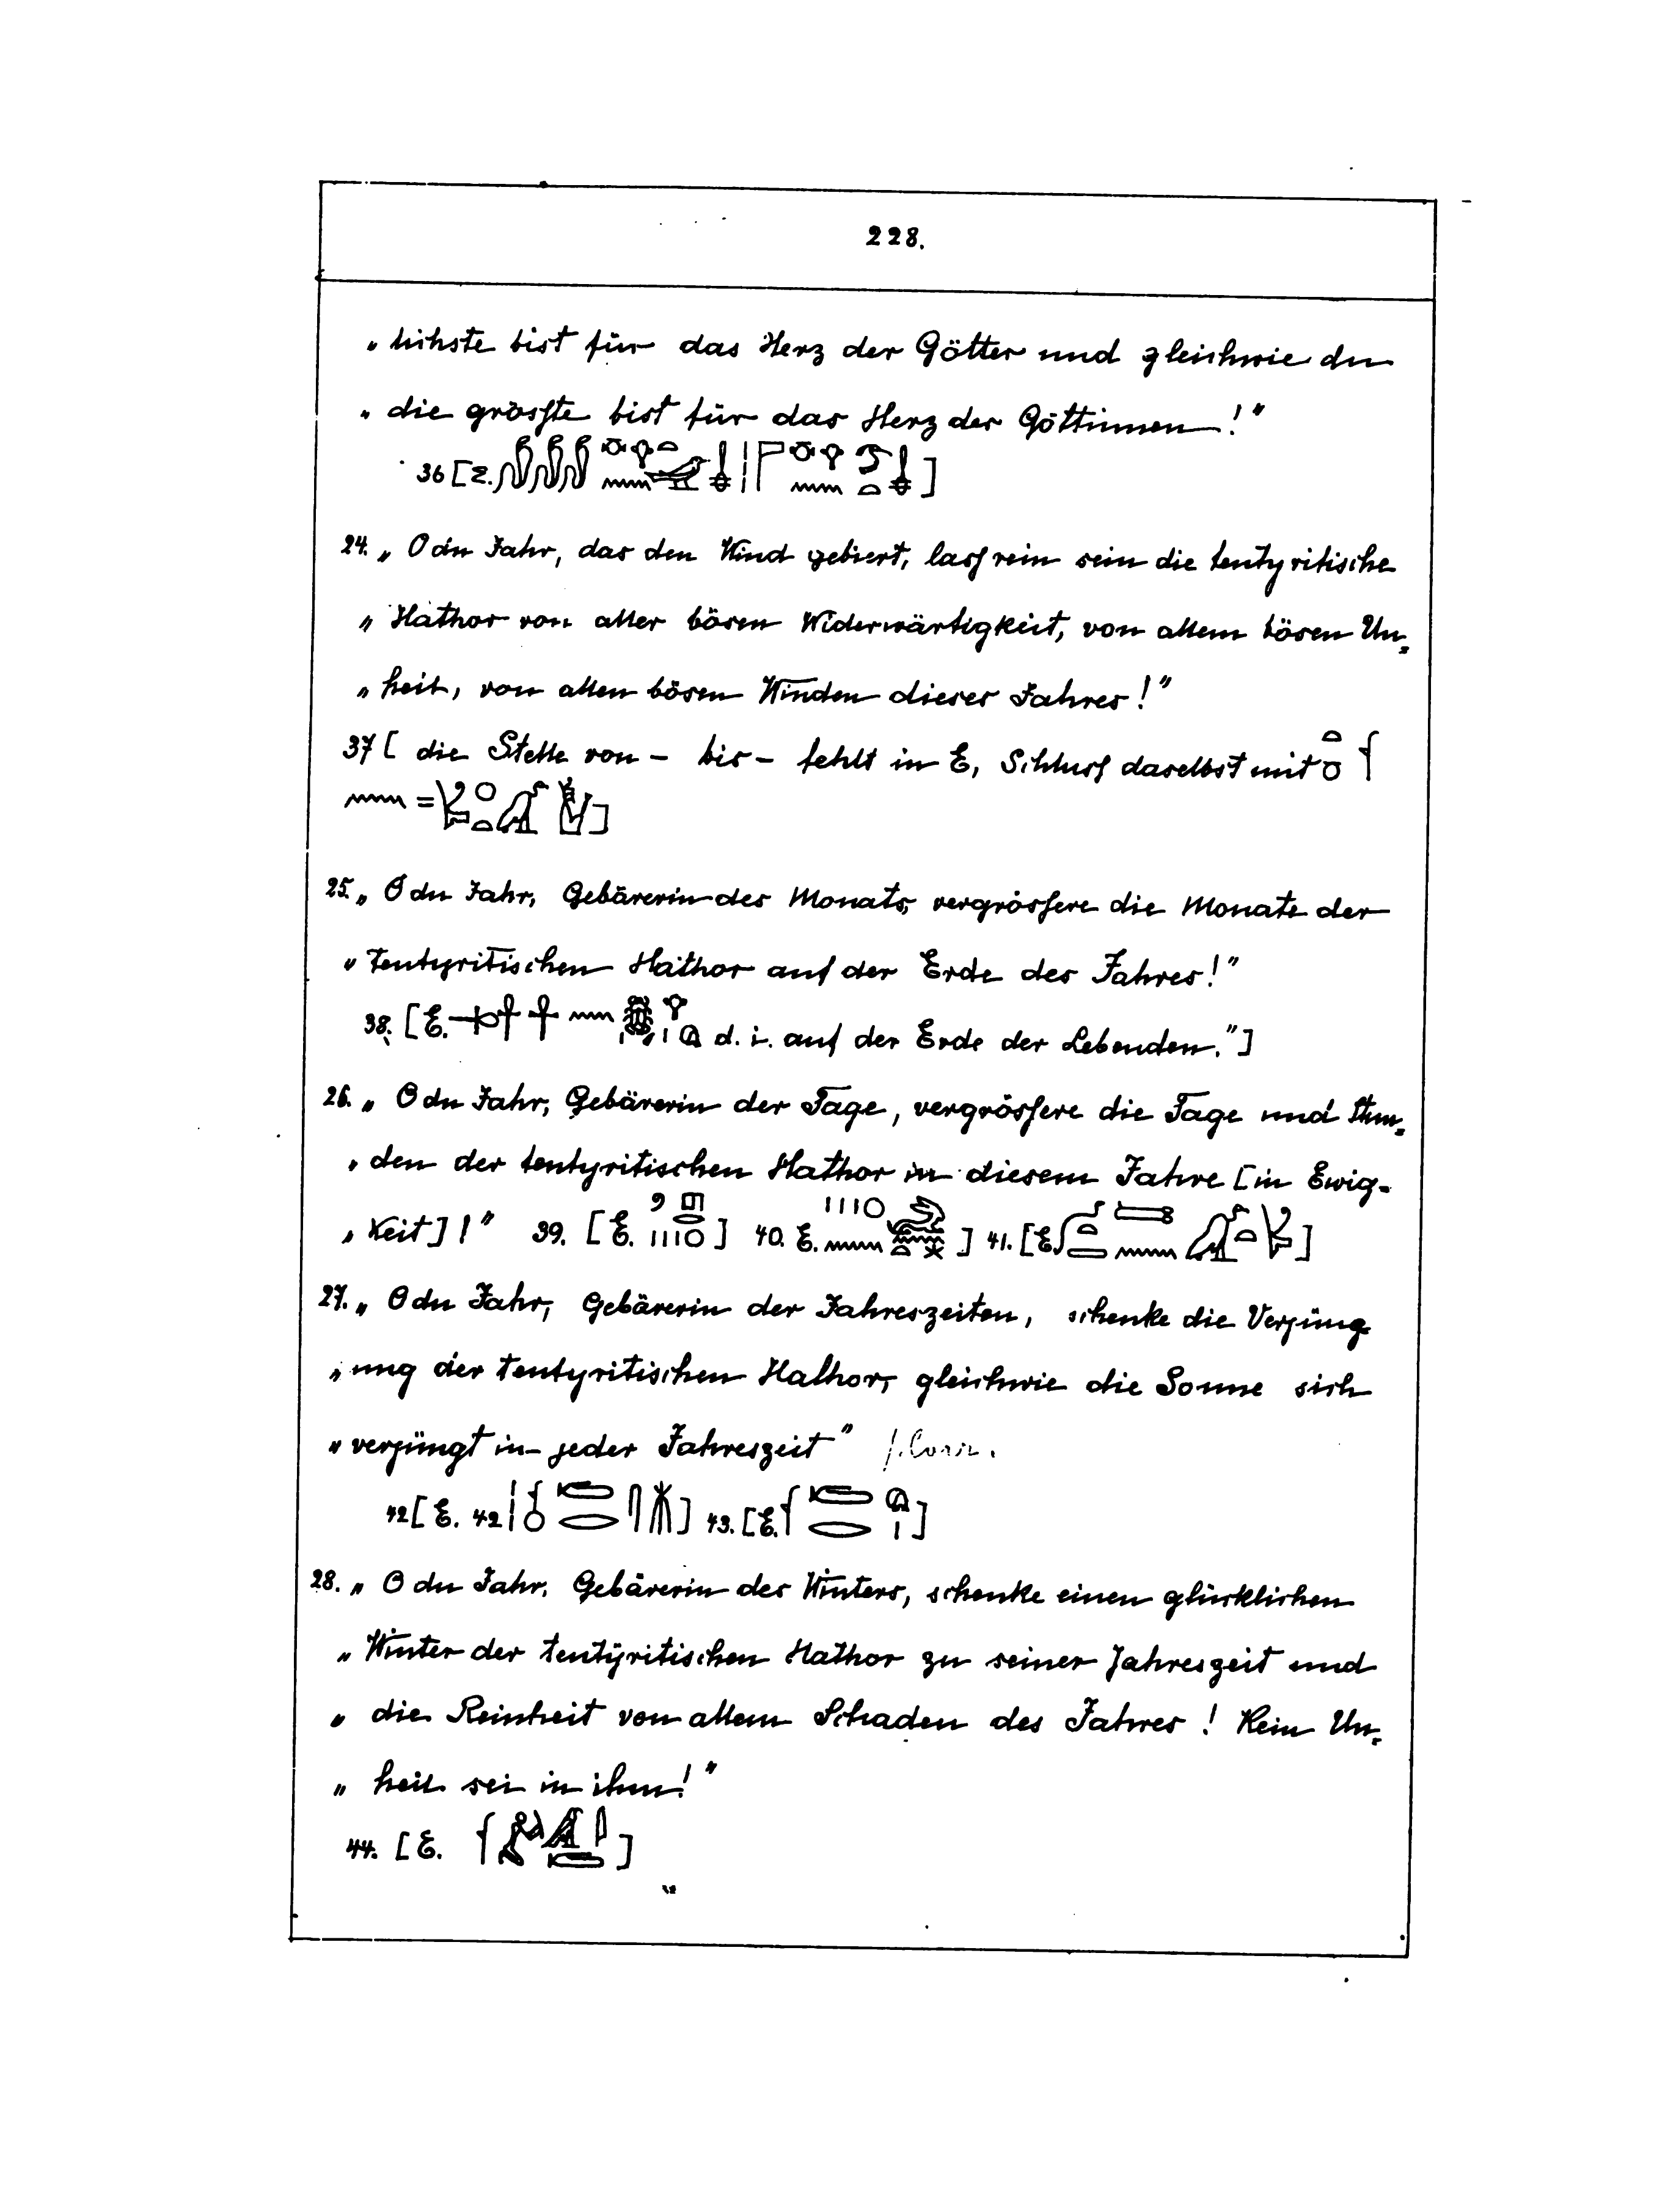 228.
„höchste bist für das Herz der Götter und gleichwie du
„die grösste bist für das Herz der Göttinnen!"
36 [E. ]
24. „O du Jahr, das den Wind gebiert, lass rein sein die tentyritische
„Hathor von aller bösen Widerwärtigkeit, von allem bösen Un-
„heil, von allen bösen Winden dieses Jahres!"
37 [ die Stelle von – bis – fehlt in E, Schluss daselbst mit
= ]
25. „O du Jahr, Gebärerin des Monats, vergrössere die Monate der
„tentyritischen Hathor auf der Erde des Jahres!"
38. [E. d. i. auf der Erde der Lebenden."]
26. „O du Jahr, Gebärerin der Tage, vergrössere die Tage und Stun-
„den der tentyritischen Hathor in diesem Jahre [in Ewig-
„keit]!" 39. [E. ] 40. E. ] 41. [E. ]
27. „O du Jahr, Gebärerin der Jahreszeiten, schenke die Verjüng-
„ung der tentyritischen Hathor, gleichwie die Sonne sich
„verjüngt in jeder Jahreszeit"
42 [E. 42 ] 43. [E. ]
28. „O du Jahr, Gebärerin des Winters, schenke einen glücklichen
„Winter der tentyritischen Hathor zu seiner Jahreszeit und
„die Reinheit von allem Schaden des Jahres! Kein Un-
„heil sei in ihm!"
44. [E. ]